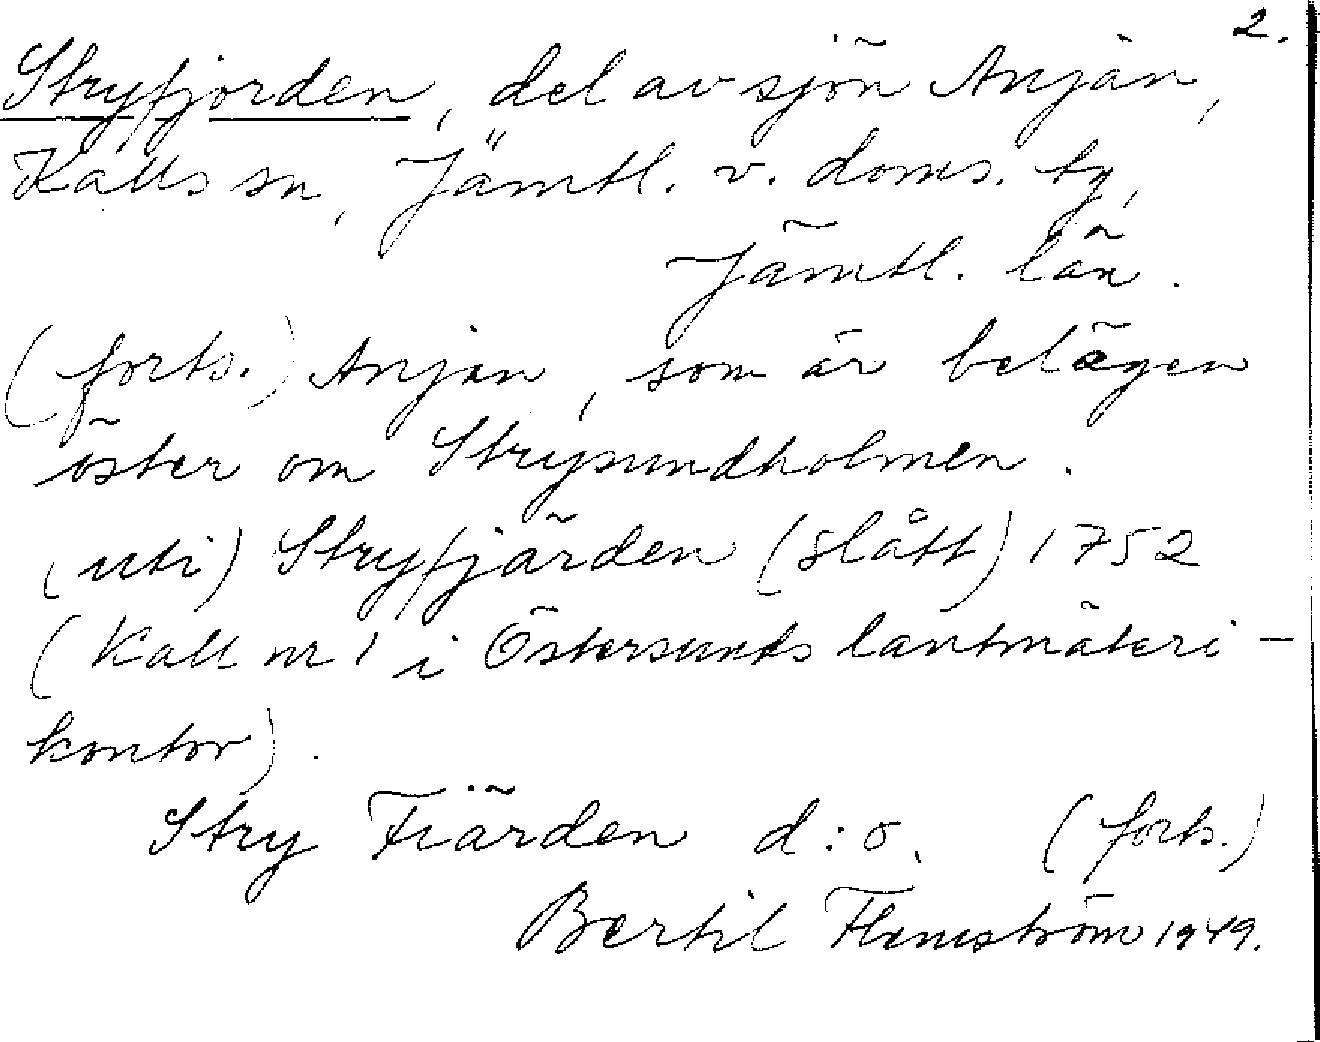 2.
Stryfjorden, del av sjön Anjan,
Kalls sn, Jämtl. v. doms. tg,
Jämtl. län.
(forts.) Anjan, som är belägen
öster om Strysundholmen.
(uti) Stryfjärden (slått) 1752
(Kall nr 1 i Östersunds lantmäteri-
kontor).
Stry Fiärden d:o. (forts.)
Bertil Flemström 1949.